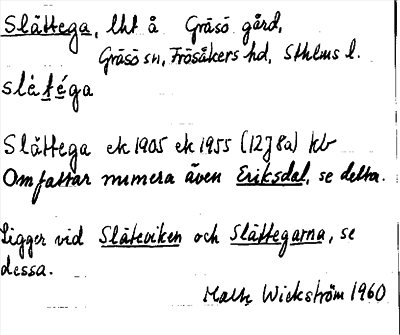 Slåttega, lht å Gräsö gård,
Gräsö sn, Frösåkers hd, Sthlms l.
slå̀téga
Slåttega ek 1905 ek 1955 (12J8a) kb
Omfattar numera även Eriksdal, se detta.
Ligger vid Slåteviken och Slåttegarna, se
dessa.
Mats Wickström 1960